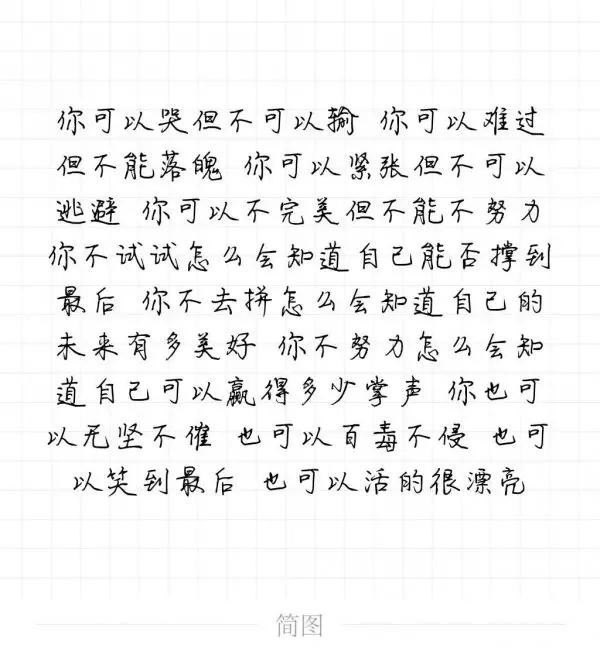 你可以哭但不可以输 你可以难过
但不能落魄 你可以紧张但不可以
逃避 你可以不完美但不能不努力
你不试试怎么会知道自己能否撑到
最后 你不去拼怎么会知道自己的
未来有多美好 你不努力怎么会知
道自己可以赢得多少掌声 你也可
以无坚不催 也可以百毒不侵 也可
以笑到最后 也可以活的很漂亮
简图